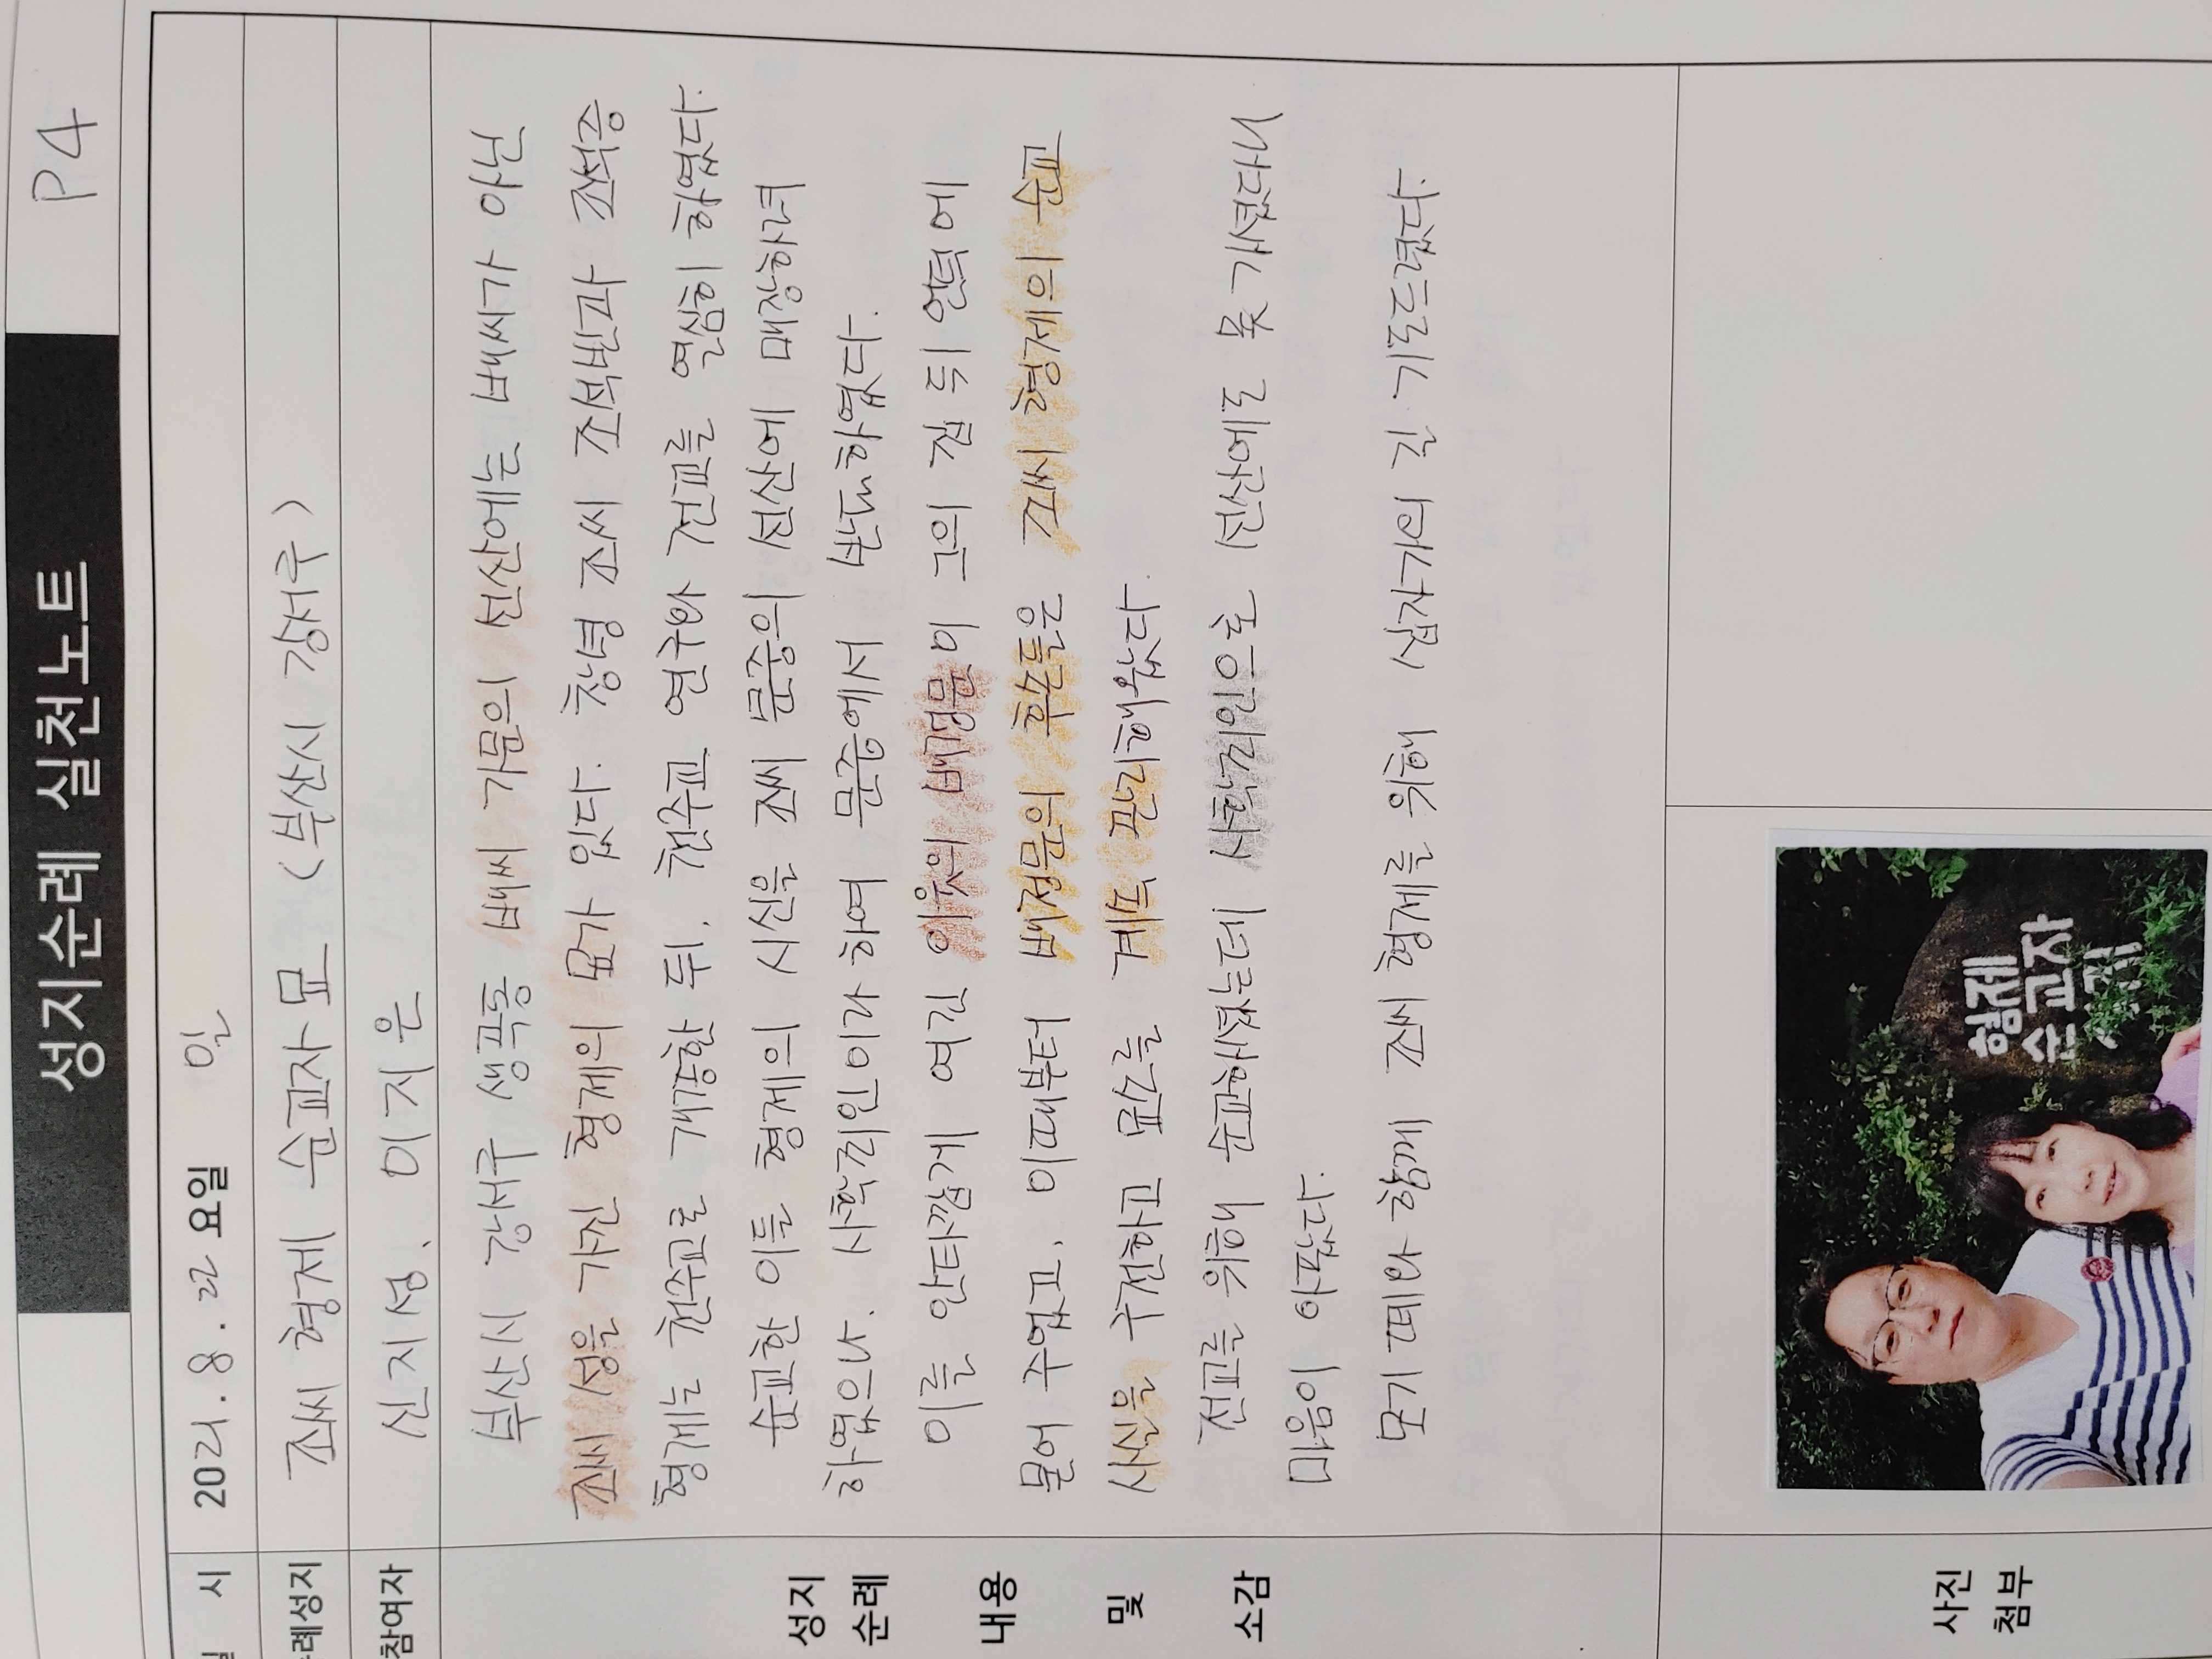 성지순례 실천노트
P4
시
2021. 8. 22 요일 일
례성지
조씨 형제 순교자 묘 (부산시 강서구)
참여자
신지성, 이지은
성지
순례
내용
및
소감
부산시 강서구 생곡동 배씨 가문의 선산에는 배씨가 아닌
조씨 성을 가진 형제의 묘가 있다. 창녕 조씨 조석빈과 조석증
형제는 천주교로 개종한 뒤, 천주교 연구와 전교를 열심히 하였다.
순교한 이들 형제의 시신을 조씨 문중의 선산에 매장하려
하였으나, 사학죄인이라 하여 문중에서 반대하였다.
이를 안타깝게 여긴 이웃의 배정문이 그의 집 뒤 언덕에
묻어 주었고, 이때부터 배정문의 후손들은 조씨 형제의 순교
사실을 구전하고 묘소를 계속 관리해왔다.
전교를 위해 순교하셨는데 사학죄인으로 선산에도 못 가셨다니
마음이 아팠다.
모기 떼와 함께 조씨 형제를 위해 십자가의 길 기도드렸다.
사진
첨부
형제
순교자